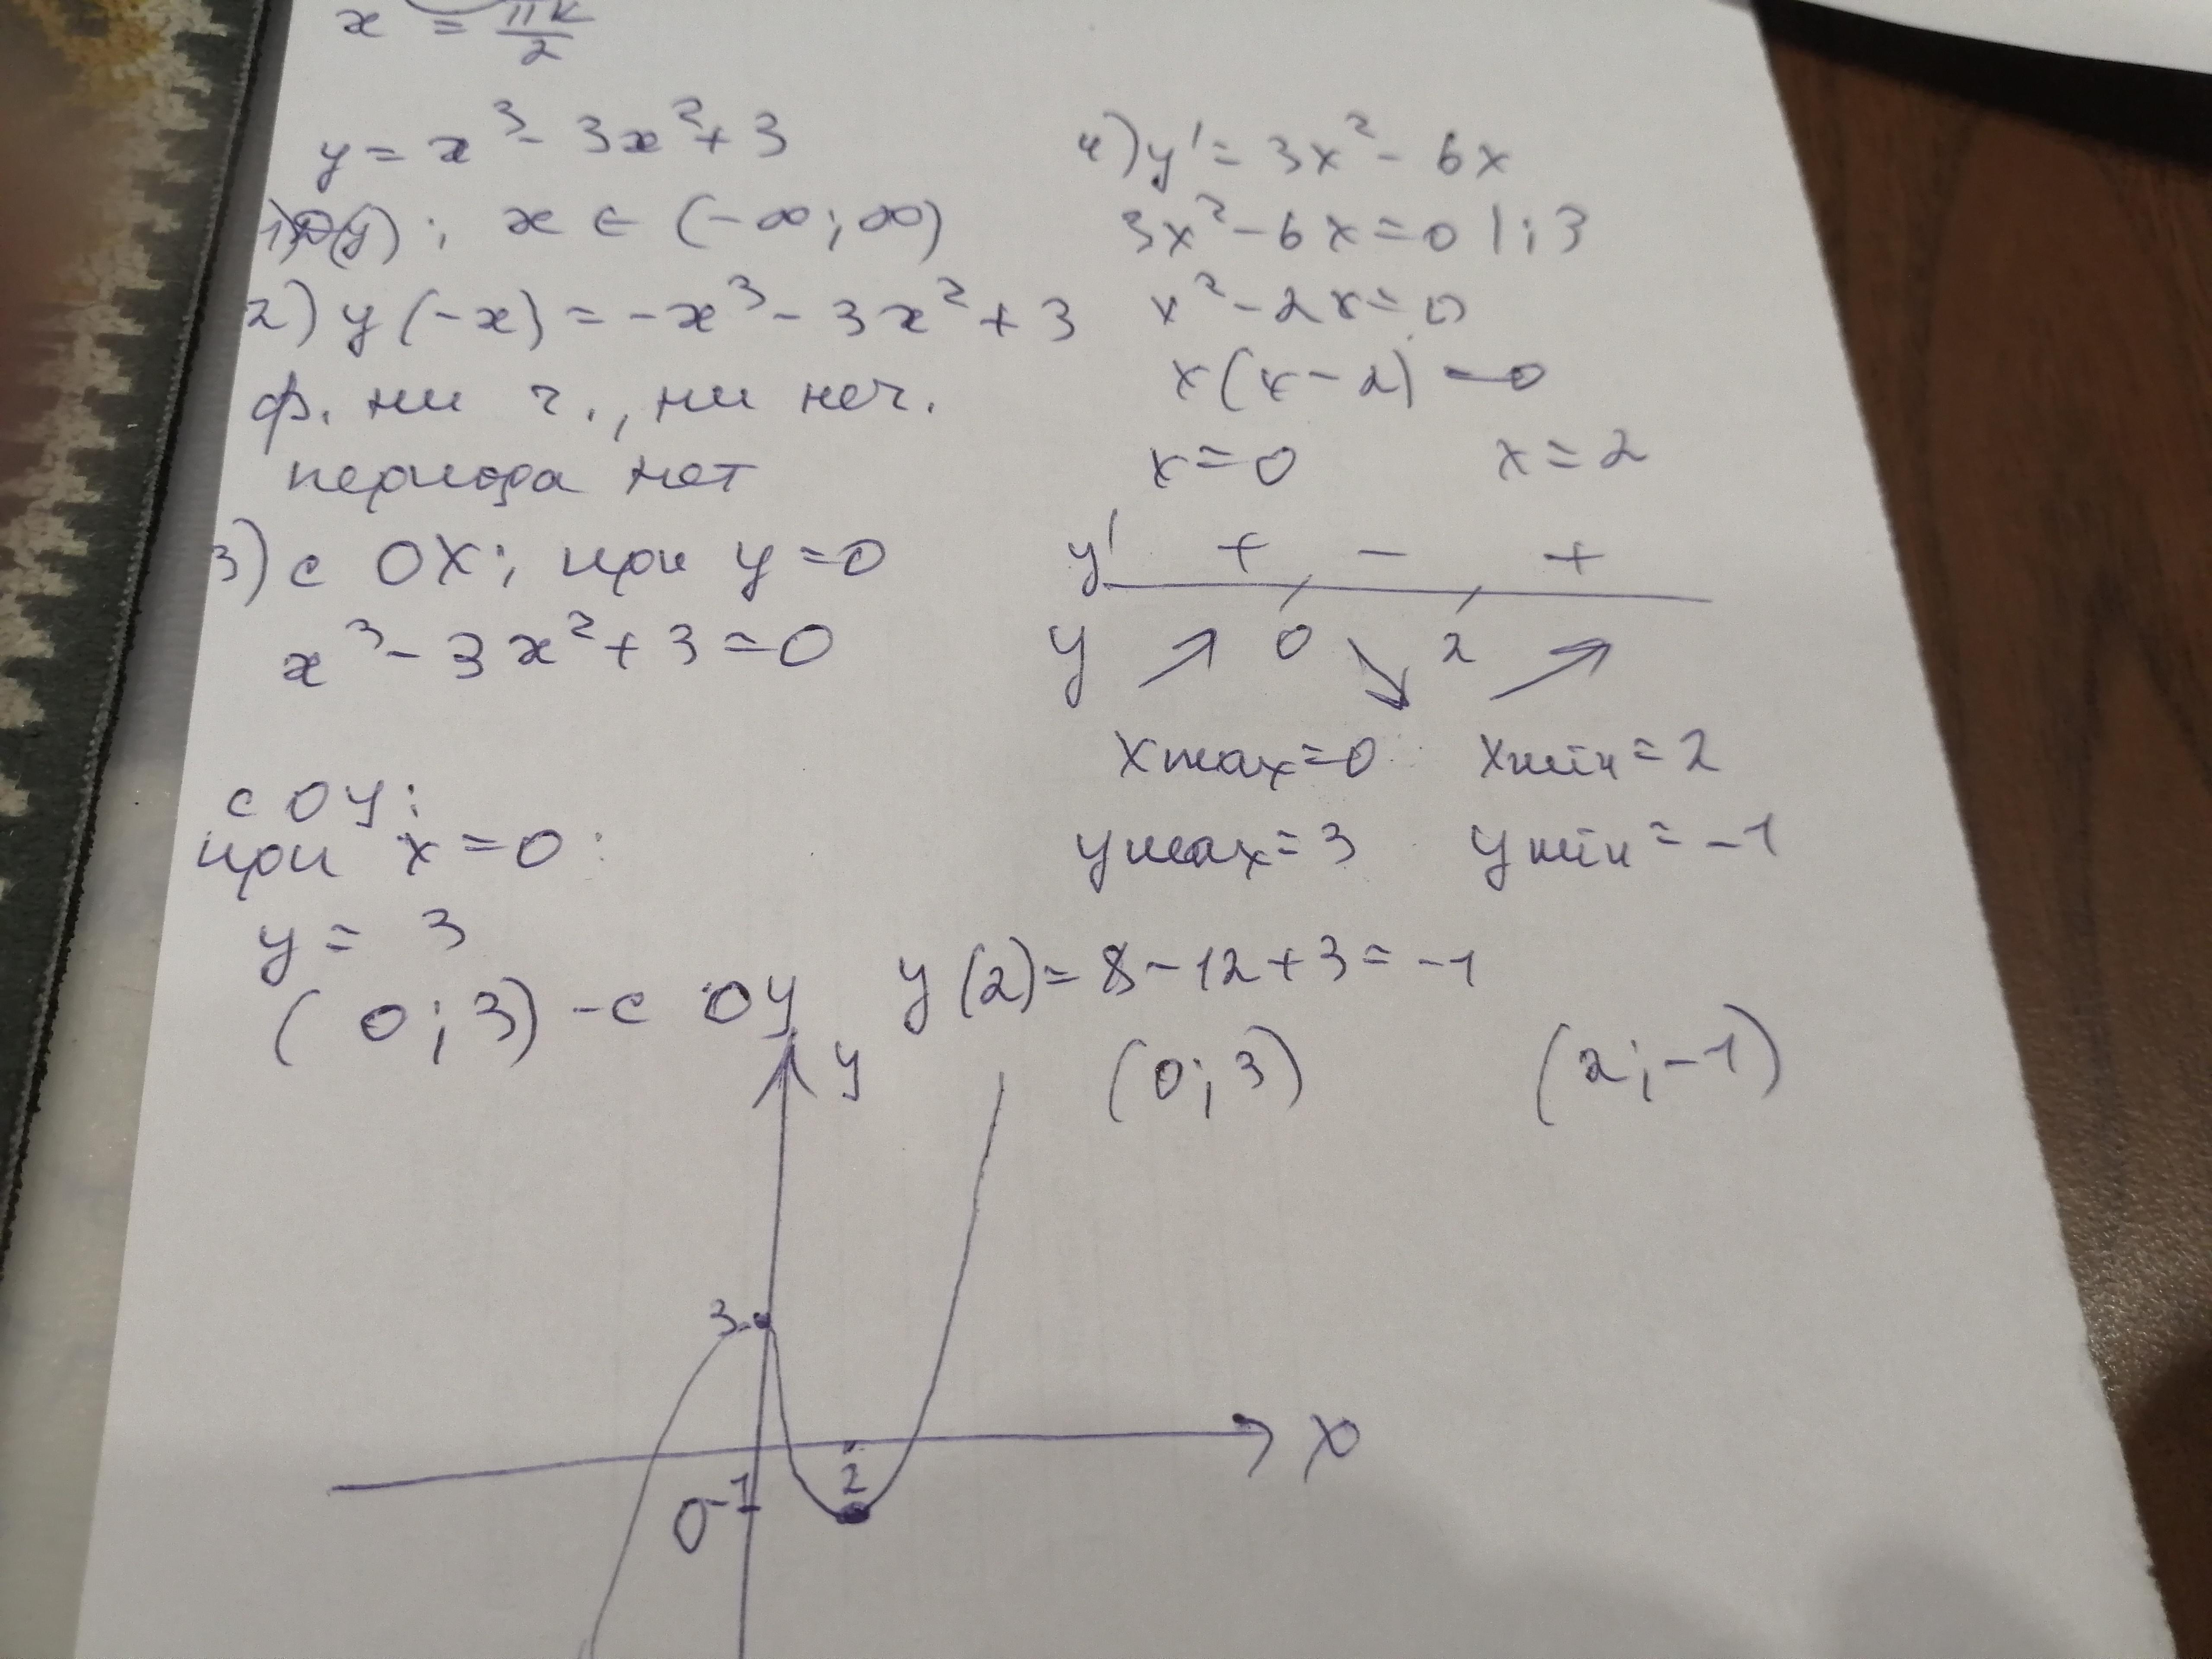 x = πk/2
y = x³ - 3x² + 3
1) D(y): x ∈ (-∞; ∞)
2) y(-x) = -x³ - 3x² + 3
ф. ни ч., ни неч.
периода нет
3) с OX: при y = 0
x³ - 3x² + 3 = 0
с OY:
при x = 0:
y = 3
(0; 3) - с OY
4) y' = 3x² - 6x
3x² - 6x = 0 | : 3
x² - 2x = 0
x(x - 2) = 0
x = 0 x = 2
y' + - +
y 0 2
xmax = 0 xmin = 2
ymax = 3 ymin = -1
y(2) = 8 - 12 + 3 = -1
(0; 3) (2; -1)
y
3
x
2
-1
0